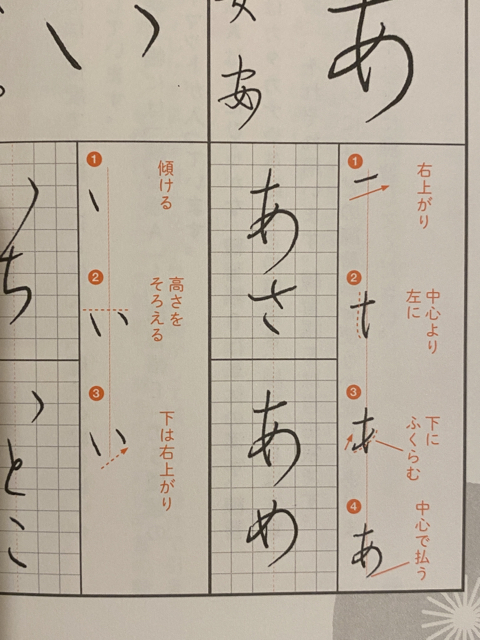 あ
安
❶
右上がり
❷
中心より
左に
❸
下に
ふくらむ
❹
中心で払う
あさ
あめ
い
❶
傾ける
❷
高さを
そろえる
❸
下は右上がり
いち
いとこ